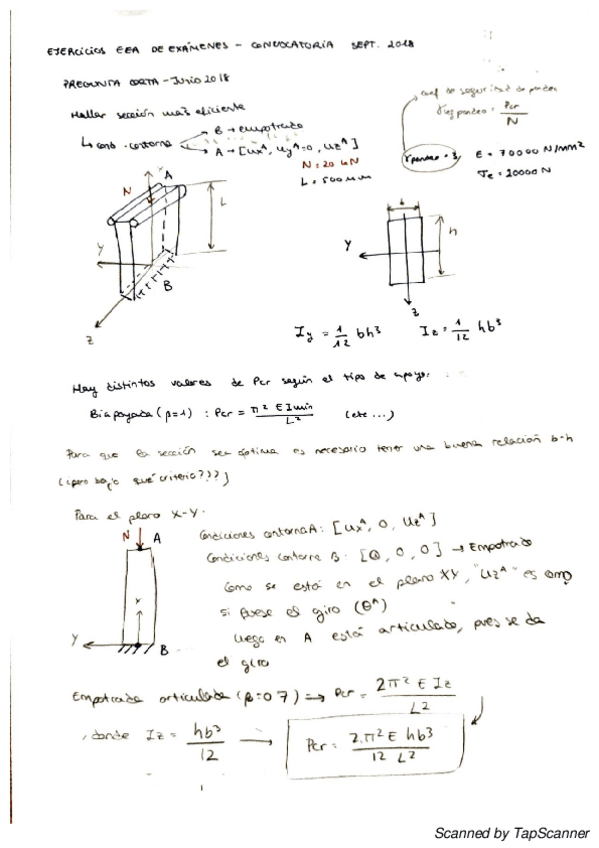 EJERCICIOS EEA DE EXÁMENES - CONVOCATORIA SEPT. 2018
PREGUNTA CORTA - Junio 2018
coef de seguridad de pandeo
Hallar sección más eficiente
γseg pandeo = Pcr / N
↳ cond. contorno
B → empotrado
A → [Ux^A, Uy^A=0, Uz^A]
N = 20 kN
L = 500 mm
γpandeo = 3
E = 70000 N/mm²
σe = 20000 N
N
A
L
Y
B
z
b
h
Y
z
Iy = 1/12 bh³
Iz = 1/12 hb³
Hay distintos valores de Pcr según el tipo de apoyo:
Biapoyada (β=1) : Pcr = π² E Imin / L² (etc...)
Para que la sección sea óptima es necesario tener una buena relación b-h
(¿pero bajo qué criterio???)
Para el plano X-Y:
N
A
x
Y
B
Condiciones contorno A: [Ux^A, 0, Uz^A]
Condiciones contorno B: [0, 0, 0] → Empotrado
Como se está en el plano XY, "Uz^A" es como
si fuese el giro (θ^A)
luego en A está articulado, pues se da
el giro
Empotrada articulada (β=0.7) ⟹ Pcr = 2π² E Iz / L²
, donde Iz = hb³ / 12 → Pcr = 2.π² E hb³ / 12 L²
Scanned by TapScanner